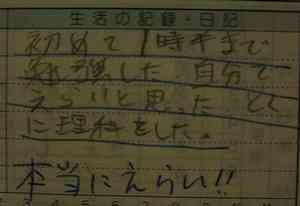 生活の記録・日記
初めて1時半まで
勉強した 自分で
えらいと思った とく
に理科をした。
本当にえらい!!